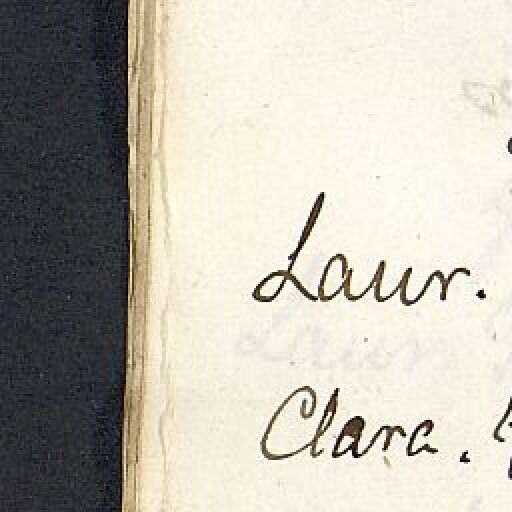 Laur.
Clara.